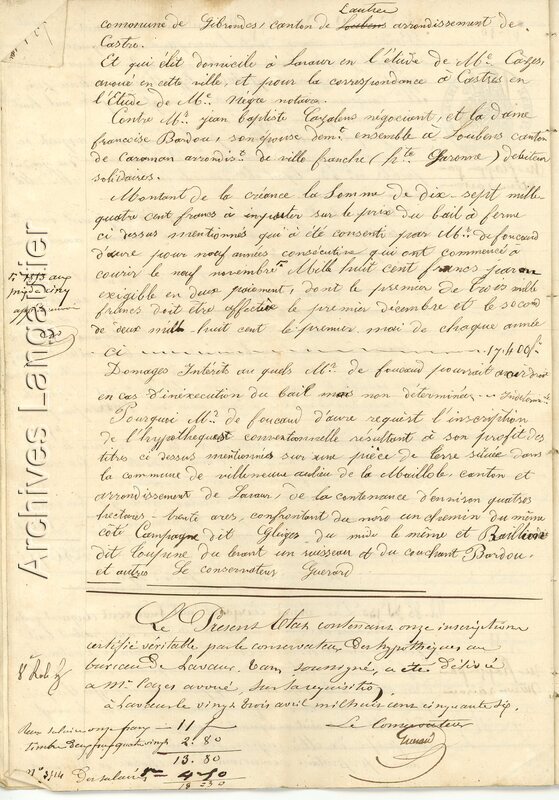 Lautrec
commune de Gibrondes, canton de Loubens arrondissement de
Castres.
Et qui élit domicile à Lavaur en l'étude de Me. Cazes,
avoué en cette ville, et pour la correspondance à Castres en
l'Etude de Me. Negre notaire.
Contre Mr. jean baptiste Cazalens négociant, et la dame
françoise Bardou, son épouse demt. ensemble à Loubens canton
de Caraman arrondist. de ville franche (hte. Garonne) débiteurs
solidaires.
Montant de la créance la Somme de dix-sept mille
quatre cent francs à imputer sur le prix du bail à ferme
ci dessus mentionné qui a été consenti par Mr. de foucaud
d'aure pour neuf années consécutives qui ont commencé à
courir le neuf novembre Mille huit cent
exigible en deux paiement, dont le premier de trois mille
francs doit être effectué le premier décembre et le second
de deux mille huit cent le premier mai de chaque année
ci 17.400f.
Domages Intérêts auquels Mr. de foucaud pourrait avoir droit
en cas d'inéxécution du bail mais non déterminés
Pourquoi Mr. de foucaud d'aure requiert l'inscription
de l'hypotheque conventionnelle résultant à son profit des
titres ci dessus mentionnés sur une pièce de terre située dans
la commune de villeneuve au lieu de la Maillole canton et
arrondissement de Lavaur, de la contenance d'environ quatre
hectares trente ares, confrontant du nord un chemin du même
côté Campagne dit Gleizes du midi le même et
dit Toupine du levant un ruisseau et du couchant Bardou
et autres Le conservateur Guerard
Le Present Etat contenant onze inscriptions
certifié véritable par le conservateur des hypothèques au
bureau de Lavaur, Tarn soussigné, a été délivré
a Mr. Cazes avoué, sur sa requisition
à Lavaur le vingt trois avril mil huit cent cinquante six.
Le Conservateur
Guerard
Pour salaire onze francs 11
timbre deux francs quatre vingt 2.80
13.80
No. 3514 Des salaires 4 50
18 30
Archives Languedier